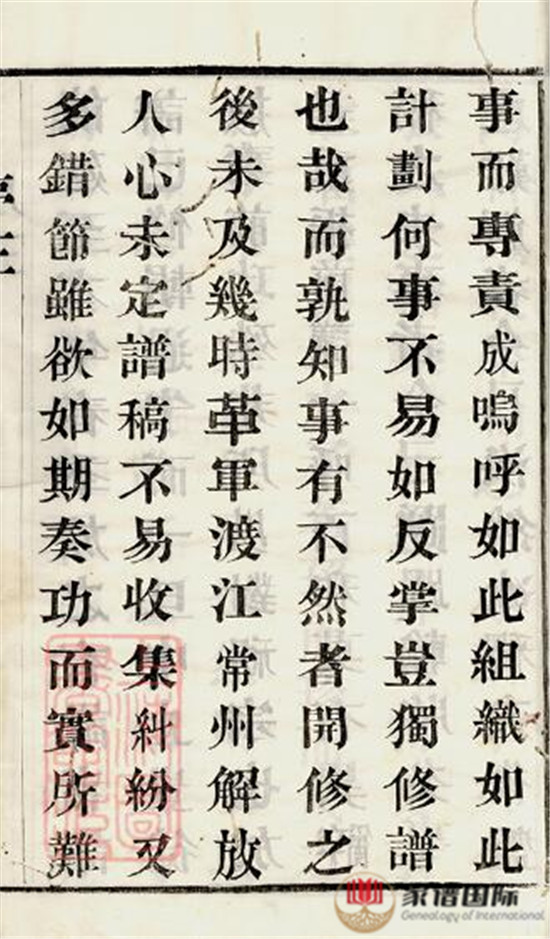 事而專責成嗚呼如此組織如此
計劃何事不易如反掌豈獨修譜
也哉而孰知事有不然者開修之
後未及幾時革軍渡江常州解放
人心未定譜稿不易收集糾紛又
多錯節雖欲如期奏功而實所難
家谱国际
Genealogy of International